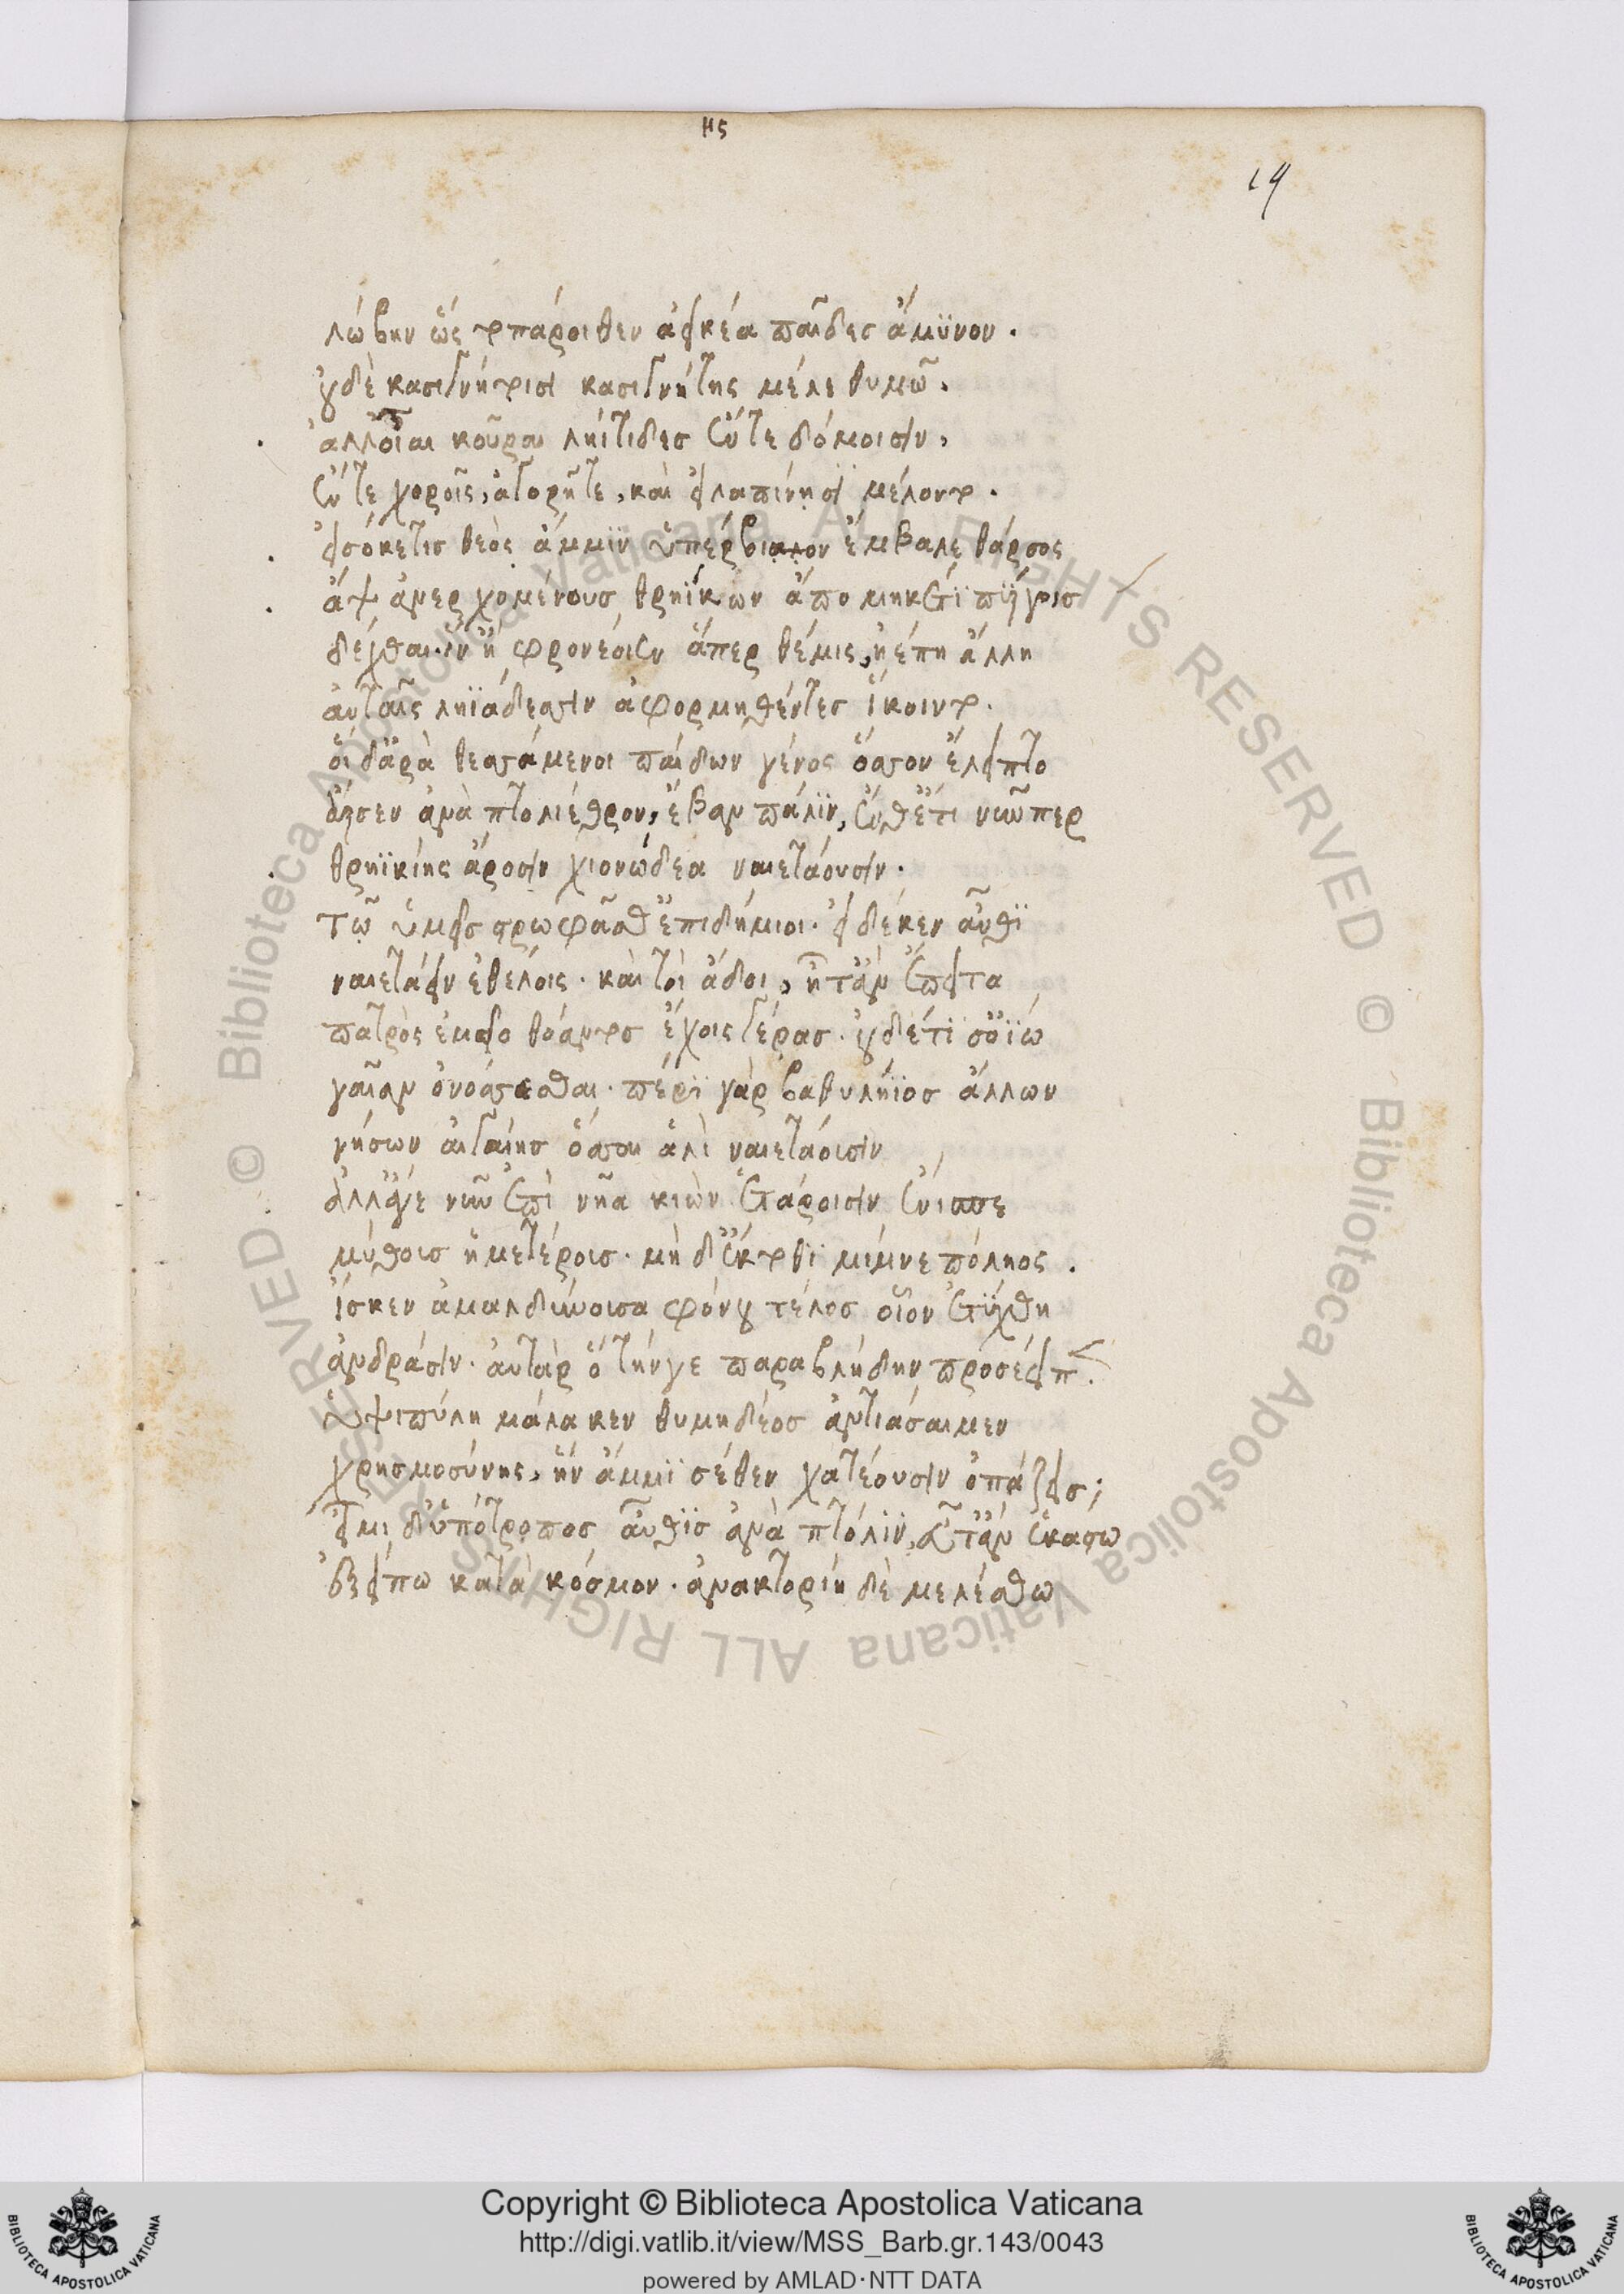 ης
19
λώβην ὡς τοπάροιθεν ἀεικέα παῖδες ἄμϋνον.
οὐδὲ κασιγνήτοισι κασιγνήτης μέλε θυμῶ.
ἀλλ' οἶαι κοῦραι ληίτιδεσ ἔντε δόμοισιν,
ἔντε χοροῖς, ἀγορῆτε, καὶ εἰλαπίνησι μέλοντο.
εἰσόκετις θεὸς ἄμμϊν ὑπέρβιον ἔμβαλε θάρσος
ἂψ ἀνερχομένουσ θρηϊκῶν ἄπο μηκέτϊ πύργοισ
δέχθαι. ἵν' ἢ φρονέοιεν ἅπερ θέμις, ἠέπη ἄλλη
αὐταῖς ληϊάδεσσιν ἀφορμηθέντεσ ἵκοιντο.
οἱ δ' ἄρα θεσσάμενοι παίδων γένος ὅσσον ἔλειπτο
ἄρσεν ἀνὰ πτολίεθρον, ἔβαν πάλϊν, ἔνθ' ἔτι νῦν περ
θρηϊκίης ἄροσιν χιονώδεα ναιετάουσιν.
τῶ ὑμεῖσ στρωφᾶσθ' ἐπιδήμιοι. εἰ δέκεν αὖθϊ
ναιετάειν ἐθέλοις. καὶ τοὶ ἅδοι, ἦ τ' ἂν ἔπειτα
πατρὸς ἐμεῖο θόαντοσ ἔχοις γέρασ. οὐδέ τί σ' ὀΐω
γαῖαν ὀνόσσεσθαι. πέρϊ γὰρ βαθυλήϊοσ ἄλλων
νήσων αἰγαίησ ὅσσαι ἁλὶ ναιετάουσιν
ἀλλ' ἄγε νῦν ἐπὶ νῆα κιὼν ἑτάροισιν ἔνισπε
μύθοισ ἡμετέροισ. μὴ δ' ἔκτοθϊ μίμνε πόληος.
ἴσκεν ἀμαλδύνουσα φόνου τέλοσ οἷον ἐτύχθη
ἀνδράσιν. αὐτὰρ ὁ τήνγε παραβλήδην προσέειπ.
Ὑψιπύλη μάλα κεν θυμηδέοσ ἀντιάσαιμεν
χρησμοσύνης, ἣν ἄμμϊ σέθεν χατέουσιν ὀπάζεισ;
εἶμι δ' ὑπότροποσ αὖθϊσ ἀνὰ πτόλϊν, εὖτ' ἂν ἕκαστα
ἐξείπω κατὰ κόσμον. ἀνακτορίη δὲ μελέσθω
Copyright © Biblioteca Apostolica Vaticana
http://digi.vatlib.it/view/MSS_Barb.gr.143/0043
powered by AMLAD·NTT DATA
BIBLIOTECA APOSTOLICA VATICANA
BIBLIOTECA APOSTOLICA VATICANA
Biblioteca Apostolica Vaticana ALL RIGHTS RESERVED ©
Biblioteca Apostolica Vaticana ALL RIGHTS RESERVED ©